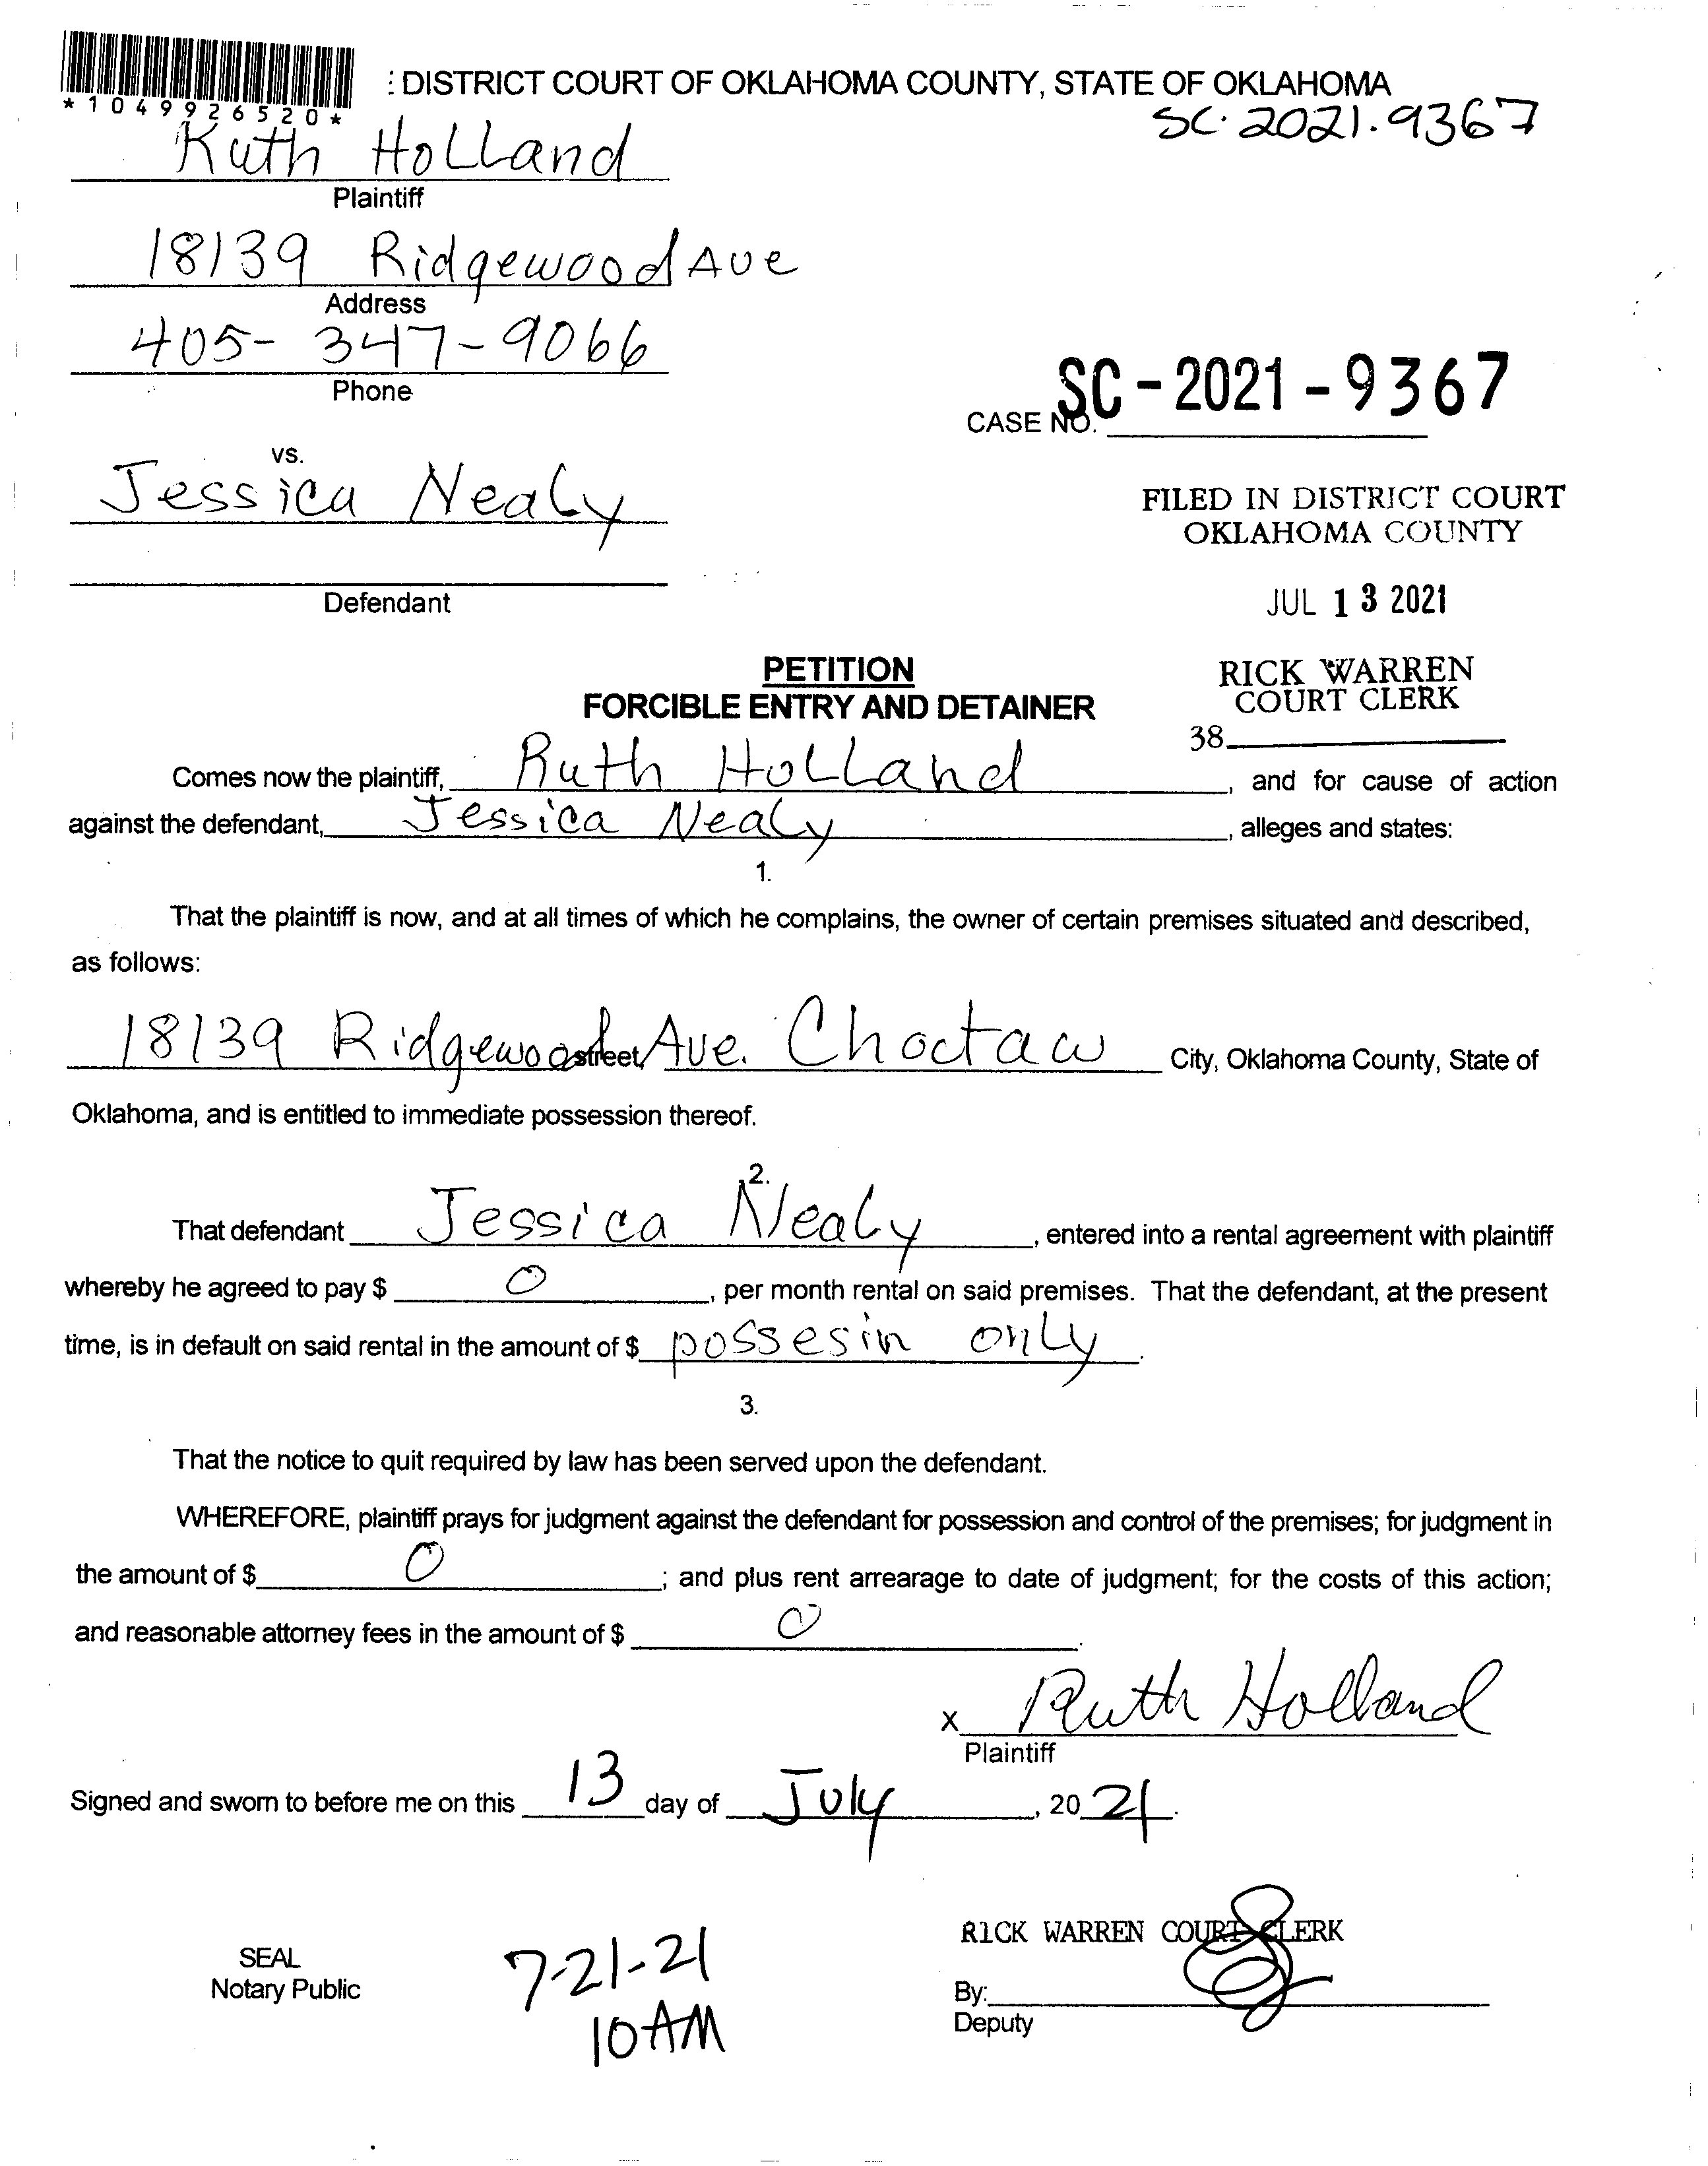 : DISTRICT COURT OF OKLAHOMA COUNTY, STATE OF OKLAHOMA
*1049926520*
SC-2021-9367
Ruth Holland
Plaintiff
18139 Ridgewood Ave
Address
405-347-9066
Phone
SC-2021-9367
CASE NO.
vs.
Jessica Nealy
Defendant
FILED IN DISTRICT COURT
OKLAHOMA COUNTY
JUL 13 2021
RICK WARREN
COURT CLERK
38
PETITION
FORCIBLE ENTRY AND DETAINER
Comes now the plaintiff, Ruth Holland, and for cause of action
against the defendant, Jessica Nealy, alleges and states:
1.
That the plaintiff is now, and at all times of which he complains, the owner of certain premises situated and described,
as follows:
18139 Ridgewood street, Ave. Choctaw City, Oklahoma County, State of
Oklahoma, and is entitled to immediate possession thereof.
2.
That defendant Jessica Nealy, entered into a rental agreement with plaintiff
whereby he agreed to pay $ 0, per month rental on said premises. That the defendant, at the present
time, is in default on said rental in the amount of $ possesin only.
3.
That the notice to quit required by law has been served upon the defendant.
WHEREFORE, plaintiff prays for judgment against the defendant for possession and control of the premises; for judgment in
the amount of $ 0; and plus rent arrearage to date of judgment; for the costs of this action;
and reasonable attorney fees in the amount of $ 0.
x Ruth Holland
Plaintiff
Signed and sworn to before me on this 13 day of July, 2021.
SEAL
Notary Public
7-21-21
10AM
RICK WARREN COURT CLERK
By:
Deputy